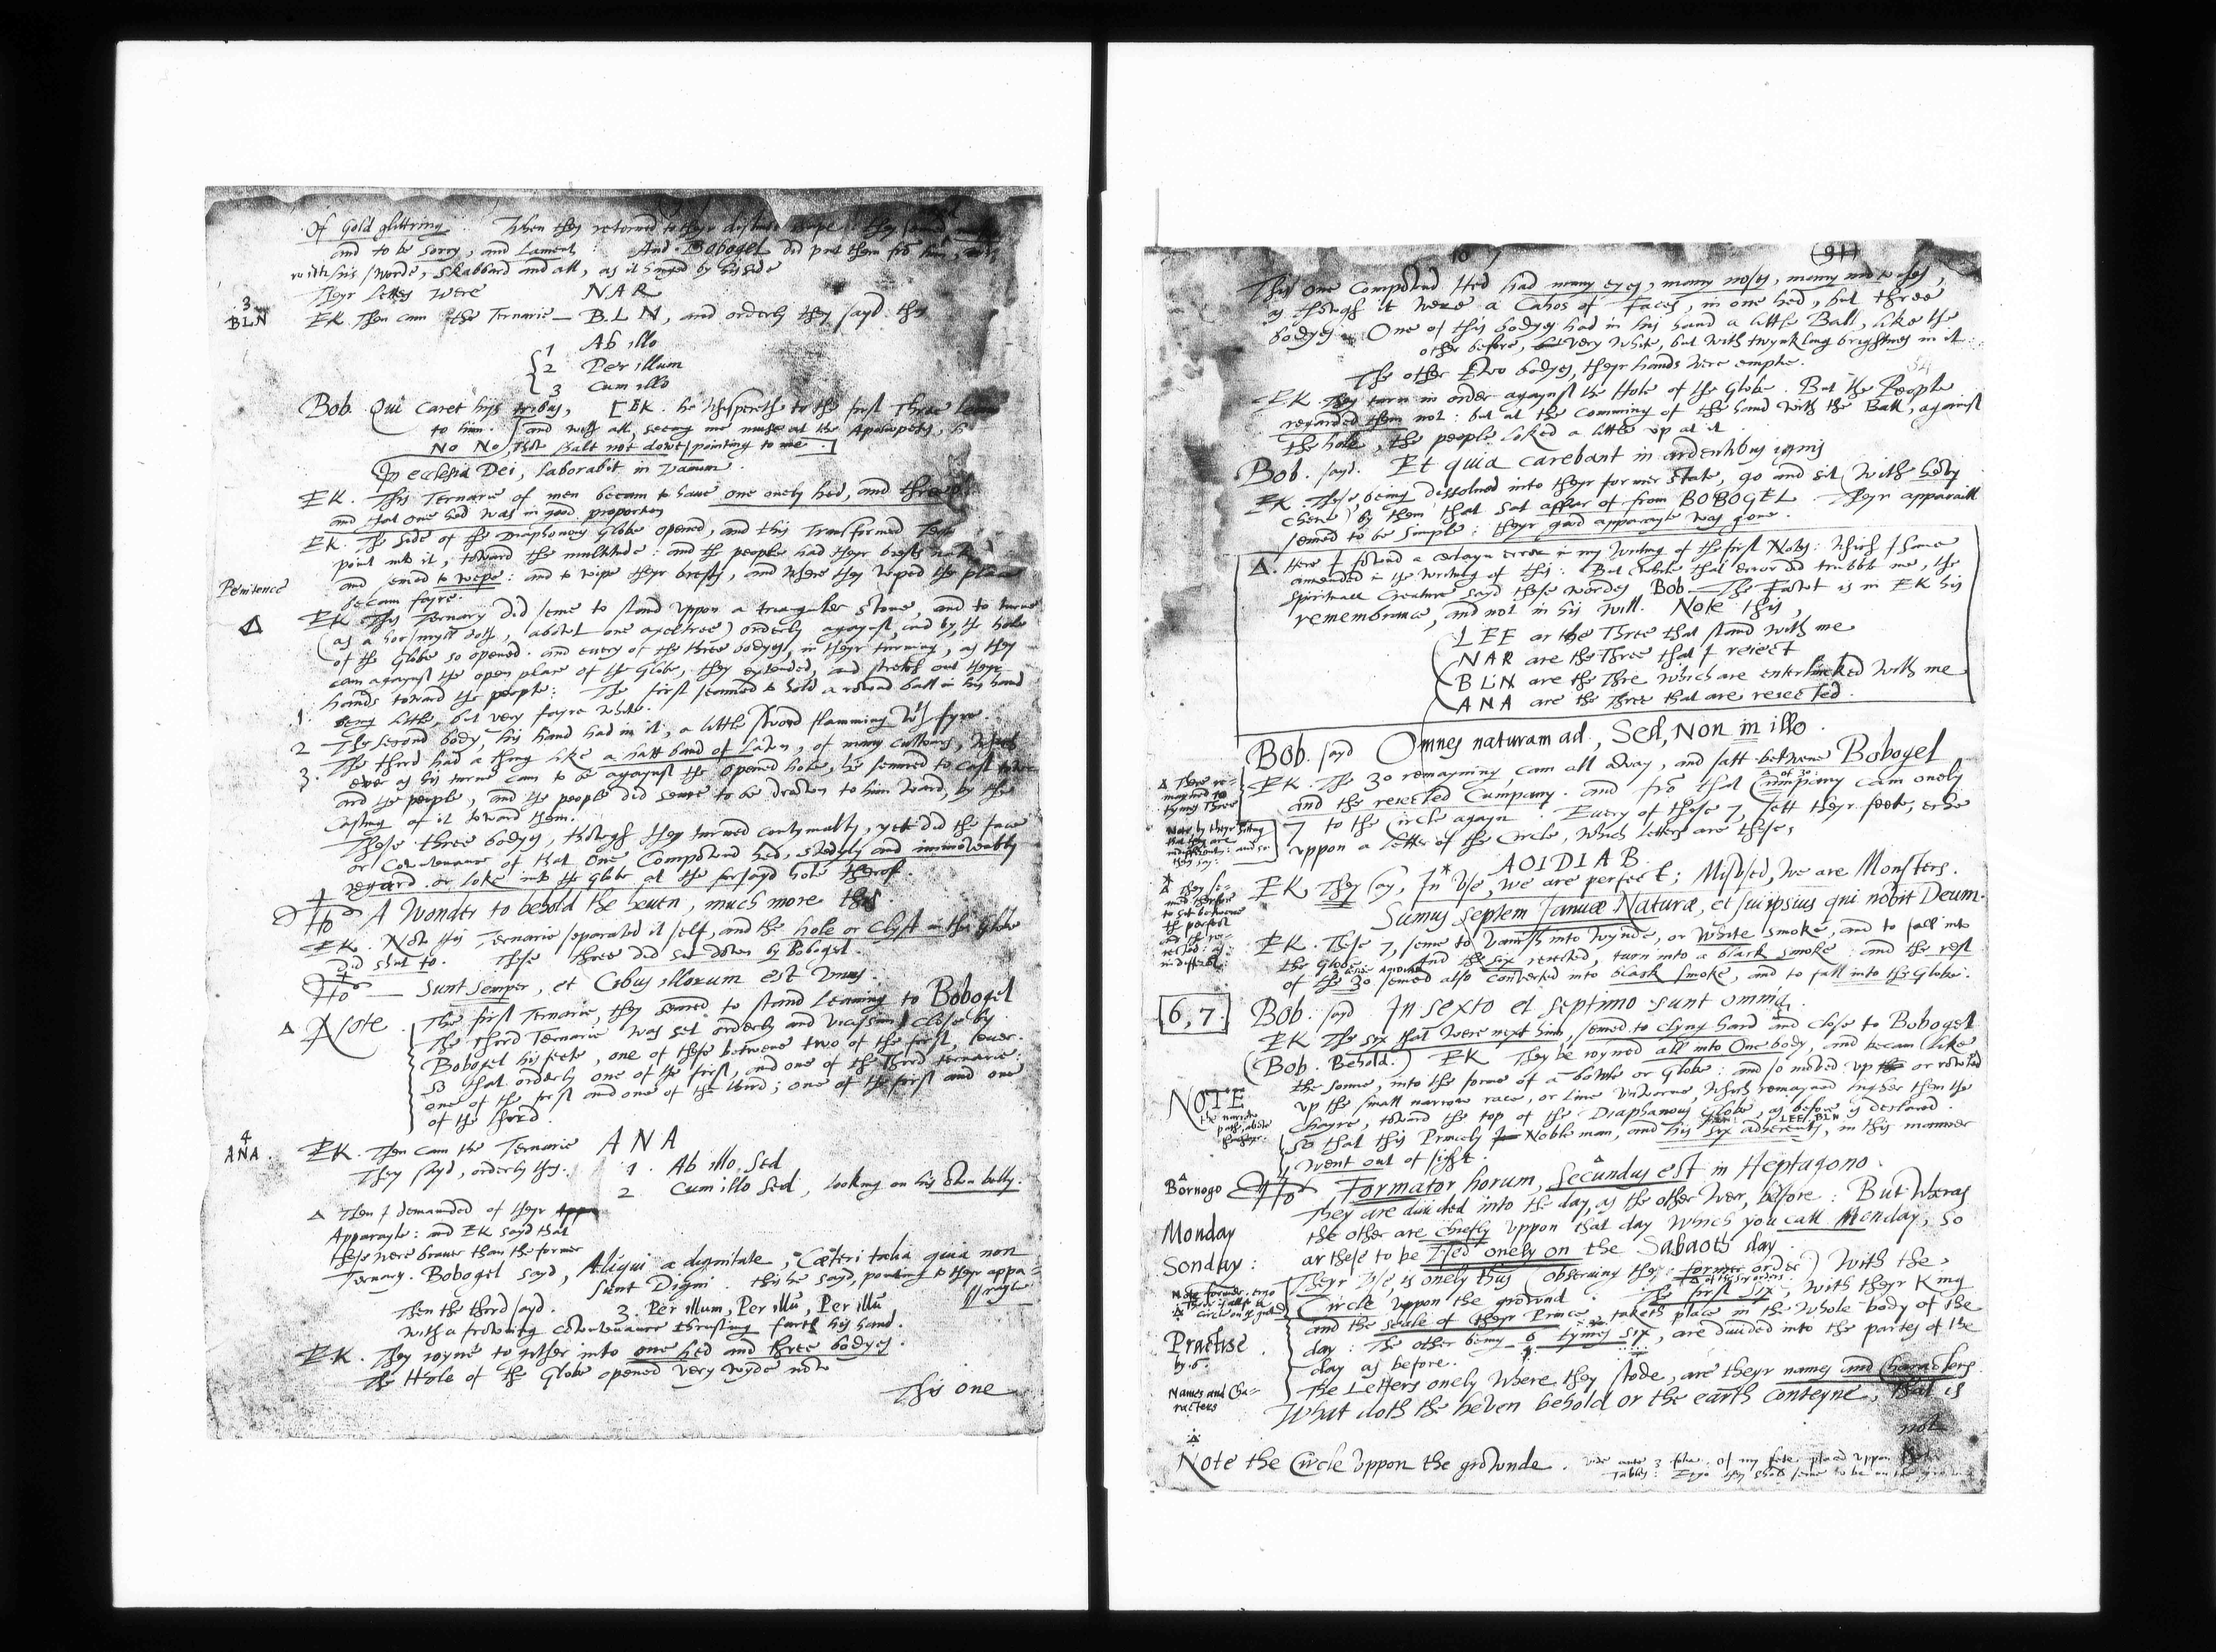 Of Gold glittring. When they retorned to theyr distinct shape, they
and to be sorry, and Lament: And Bobogel did put them fro him,
with his sworde, skabbard and all, as it hanged by his side
Theyr letters were NAR
3
BLN
EK. Then cam the Ternarie — BLN, and orderly they sayd thus
1 Ab illo
2 Per illum
3 Cum illo
Bob. Qui caret his tribus, [EK. he whispereth to the first Three
to him. and with all, seeing me muse at the Aposiopesis,
No No, thow shalt not dowt pointing to me.]
In ecclesia Dei, laborabit in Vanum.
EK. This Ternarie of men becam to have one onely hed, and three
and that one hed was in good proportion
EK. The side of the Diaphanous Globe opened, and this Transformed
point into it, toward the multitude: and the people had theyr brests naked
and semed to wepe: and to wipe theyr brests, and where they wiped the place
becam fayre.
Penitence
EK. This Ternary did seme to stand uppon a triangular stone, and to turne
(as a horsmyll doth, abowt one axeltree) orderly agaynst, and by the hole
of the Globe so opened. and every of the three bodyes, in theyr turning, as they
cam agaynst the open place of the Globe, they extended, and stretch out theyr
hands toward the people: The first semed to hold a rownd ball in his hand
1.
being little, but very fayre white.
2 The second body, his hand had in it, a little sword flamming with fyre.
3. The third had a thing like a hatt band of Laton, of many cullours, which
ever as his turne cam to be agaynst the opened hole, he semed to cast
ard the people, and the people did seme to be drawen to him ward, by the
Casting of it toward them.
These three bodyes, thowgh they turned contynually, yet did the face
or Cowntenance of that One Compownd hed, stedyly and immoveably
regard or loke into the Globe at the forsayd hole therof.
Ho A Wonder to behold the heven, much more this.
EK. Now this Ternarie separated it self, and the hole or Clyft in the Globe
did shut to. These three did set down by Bobogel.
Ho — Sunt semper, et Cibus illorum est unus.
Δ Note. The first Ternarie, they semed to stand leaning to Bobogel
The third Ternarie was set orderly and vicissim, close by
Bobogel his feete, one of these betwene two of the first, ever.
So that orderly one of the first, and one of the third ternarie:
one of the first and one of the third; one of the first and one
of the third.
4
ANA.
EK. Then cam the Ternarie ANA
They sayd, orderly thus. 1. Ab illo sed
2 Cum illo sed, looking on his own belly.
Δ Then I demaunded of theyr
Apparayle: and EK sayd that
these were braver than the former
Ternary. Bobogel sayd, Aliqui a dignitate, Cæteri talia quia non
sunt Digni. this he sayd, pointing to theyr appa=
rayle
Then the third sayd. 3. Per illum, Per illū, Per illū
with a frowning cowntenance thrusting furth his hand.
EK. They ioyne to gither into one hed and three bodyes.
The Hole of the Globe opened very wyde now
This one
10
(91)
This one Compownd Hed had many eyes, many noses, many mowthes,
as thowgh it were a Cahos of Faces, in one hed, but three
bodyes. One of this bodyes had in his hand a little Ball, like the
other before, very white, but with twynkling brightnes in it.
The other two bodyes, theyr hands were emptie.
54
EK. They turn in order agaynst the Hole of the Globe. But the People
regarded them not: but at the comming of the hand with the Ball, against
the hole, the people loked a little up at it.
Bob. sayd. Et quia carebant in ardentibus ignis
EK. These being dissolved into theyr former state, go and sit (with hevy
chere) by them that sat affar of from BOBOGEL. Theyr apparaill
semed to be simple: theyr good apparayle was gone.
Δ. Here I fownd a certayn error in my writing of the first Notes: Which I have
amended in the writing of this: But while that error did trubble me, the
Spirituall Creature sayd these wordes Bob — The Fawt is in EK his
remembrance, and not in his will. Note this,
LEE ar the Three that stand with me
NAR are the Three that I reiect
BLN are the Thre which are enterlinked with me
ANA are the three that are reiected.
Bob. sayd Omnes naturam ad, Sed, Non in illo.
Δ There re=
mayned 10
tymes Three
EK. The 30 remayning, cam all away, and satt betwene Bobogel
and the reiected Cumpany. and fro that Cumpany cam onely
7 to the Circle agayn. Every of these 7, sett theyr feete, eche
uppon a letter of the Circle, which letters are these,
AOIDIAB.
EK. They say, In Use, we are perfect; Misused, we are Monsters.
Sumus septem Januæ Naturæ, et sui ipsius qui novit Deum.
EK. These 7, seme to vanish into wynde, or white smoke, and to fall into
the Globe. And the six reiected, turn into a black smoke: and the rest
of the 30 semed also converted into black smoke, and to fall into the Globe.
6,7. Bob. sayd In sexto et septimo sunt omnia.
EK The six that were next him, semed to clyng hard and close to Bobogel
(Bob. Behold.) EK They be ioyned all into One body, and becam like
the sonne, into the forme of a bowle or globe: and so moved up or rowled
NOTE
up the small narrow race, or line Viterne, which remayned higher then the
Chayre, toward the top of the Diaphanous Globe, as before is declared.
So that this Princely Noble man, and his six adherents, in this manner
went out of sight.
Bornogo Ho Formator horum, Secundus est in Heptagono.
They are divided into the day, as the other wer, before: But wheras
Monday
the other are chiefly uppon that day which you call Monday, so
Sonday:
ar these to be Used onely on the Sabaoth day.
Theyr Use, is onely thus (observing the former order) with the
Circle uppon the grownd. The first six, with theyr King
and the seale of theyr Prince, taketh place in the whole body of the
Practise
by 6.
day: The other being 6 tymes six, are divided into the partes of the
day as before.
Names and Cha=
racters
The Letters onely where they stode, are theyr names and Characters.
What doth the heven behold or the earth conteyne, that is
not
Δ
Note the Circle uppon the grownde.